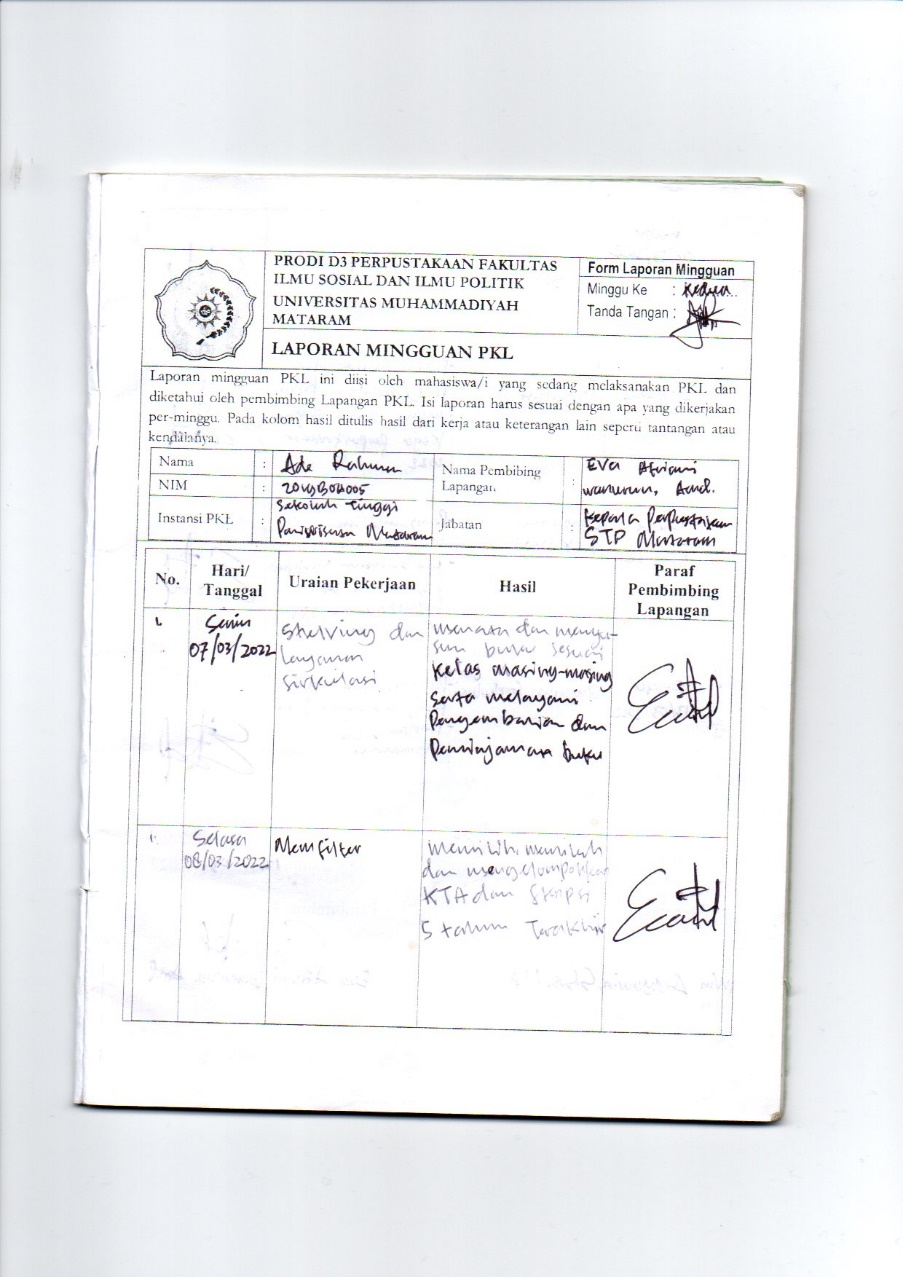 PRODI D3 PERPUSTAKAAN FAKULTAS
ILMU SOSIAL DAN ILMU POLITIK
UNIVERSITAS MUHAMMADIYAH
MATARAM
LAPORAN MINGGUAN PKL
Form Laporan Mingguan
Minggu Ke : Kedua
Tanda Tangan :
Laporan mingguan PKL ini diisi oleh mahasiswa/i yang sedang melaksanakan PKL dan
diketahui oleh pembimbing Lapangan PKL. Isi laporan harus sesuai dengan apa yang dikerjakan
per-minggu. Pada kolom hasil ditulis hasil dari kerja atau keterangan lain seperti tantangan atau
kendalanya.
Nama : Ade Rahman
NIM :
Instansi PKL : Sekolah Tinggi
Pariwisata Mataram
Nama Pembibing
Lapangan. : Eva
Jabatan : Kepala Perpustakaan
STP Mataram
No.
Hari/
Tanggal
Uraian Pekerjaan
Hasil
Paraf
Pembimbing
Lapangan
1.
Senin
07/03/2022
Shelving dan
Layanan
Sirkulasi
menata dan menyu-
sun buku sesuai
kelas masing-masing
serta melayani
Pengembalian dan
Peminjaman buku
Selasa
08/03/2022
Memfilter
memilih, memilah
dan mengelompokkan
KTA dan Skripsi
5 tahun Terakhir